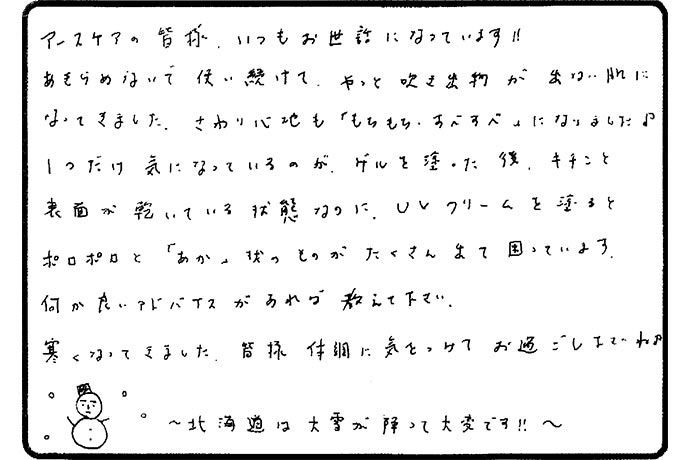 アースケアの皆様、いつもお世話になっています!!
あきらめないで使い続けて、やっと吹き出物が出ない肌に
なってきました。さわり心地も「もちもち・すべすべ」になりました♪
1つだけ気になっているのが、ゲルを塗った後、キチンと
表面が乾いている状態なのに、UVクリームを塗ると
ポロポロと「あか」状のものがたくさん出て困っています。
何か良いアドバイスがあれば教えて下さい。
寒くなってきました。皆様体調に気をつけてお過ごし下さいね♪
～北海道は大雪が降って大変です!!～